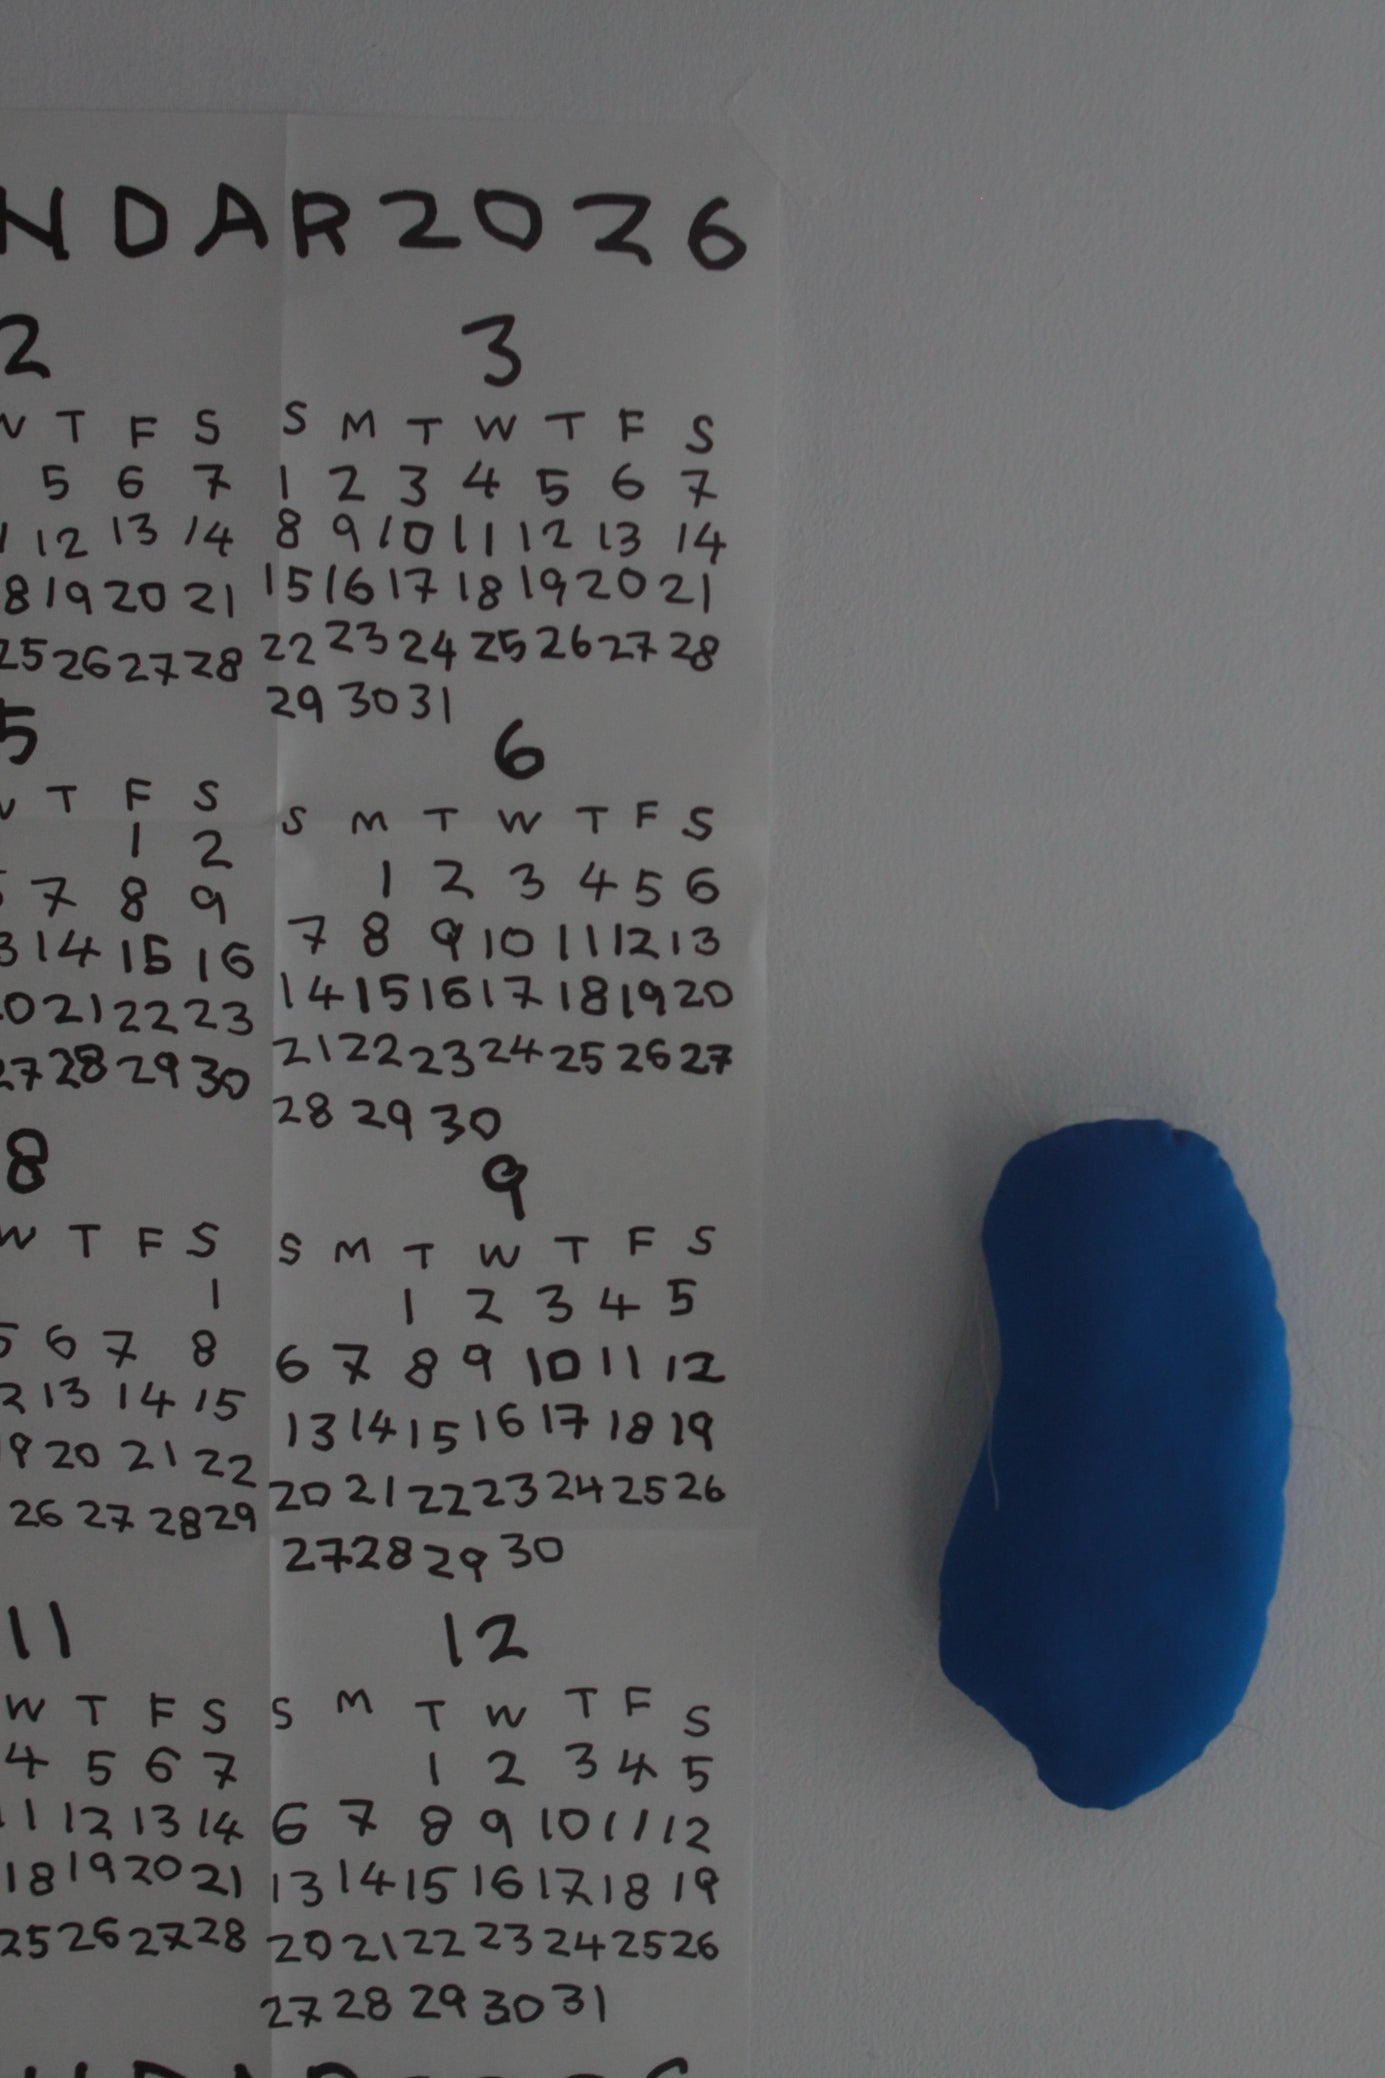 NDAR 2026
2 3
W T F S S M T W T F S
5 6 7 1 2 3 4 5 6 7
12 13 14 8 9 10 11 12 13 14
8 19 20 21 15 16 17 18 19 20 21
25 26 27 28 22 23 24 25 26 27 28
29 30 31
5 6
W T F S S M T W T F S
1 2 1 2 3 4 5 6
7 8 9 7 8 9 10 11 12 13
3 14 15 16 14 15 16 17 18 19 20
0 21 22 23 21 22 23 24 25 26 27
27 28 29 30 28 29 30
8 9
W T F S S M T W T F S
1 1 2 3 4 5
5 6 7 8 6 7 8 9 10 11 12
2 13 14 15 13 14 15 16 17 18 19
9 20 21 22 20 21 22 23 24 25 26
26 27 28 29 27 28 29 30
11 12
W T F S S M T W T F S
4 5 6 7 1 2 3 4 5
11 12 13 14 6 7 8 9 10 11 12
18 19 20 21 13 14 15 16 17 18 19
25 26 27 28 20 21 22 23 24 25 26
27 28 29 30 31